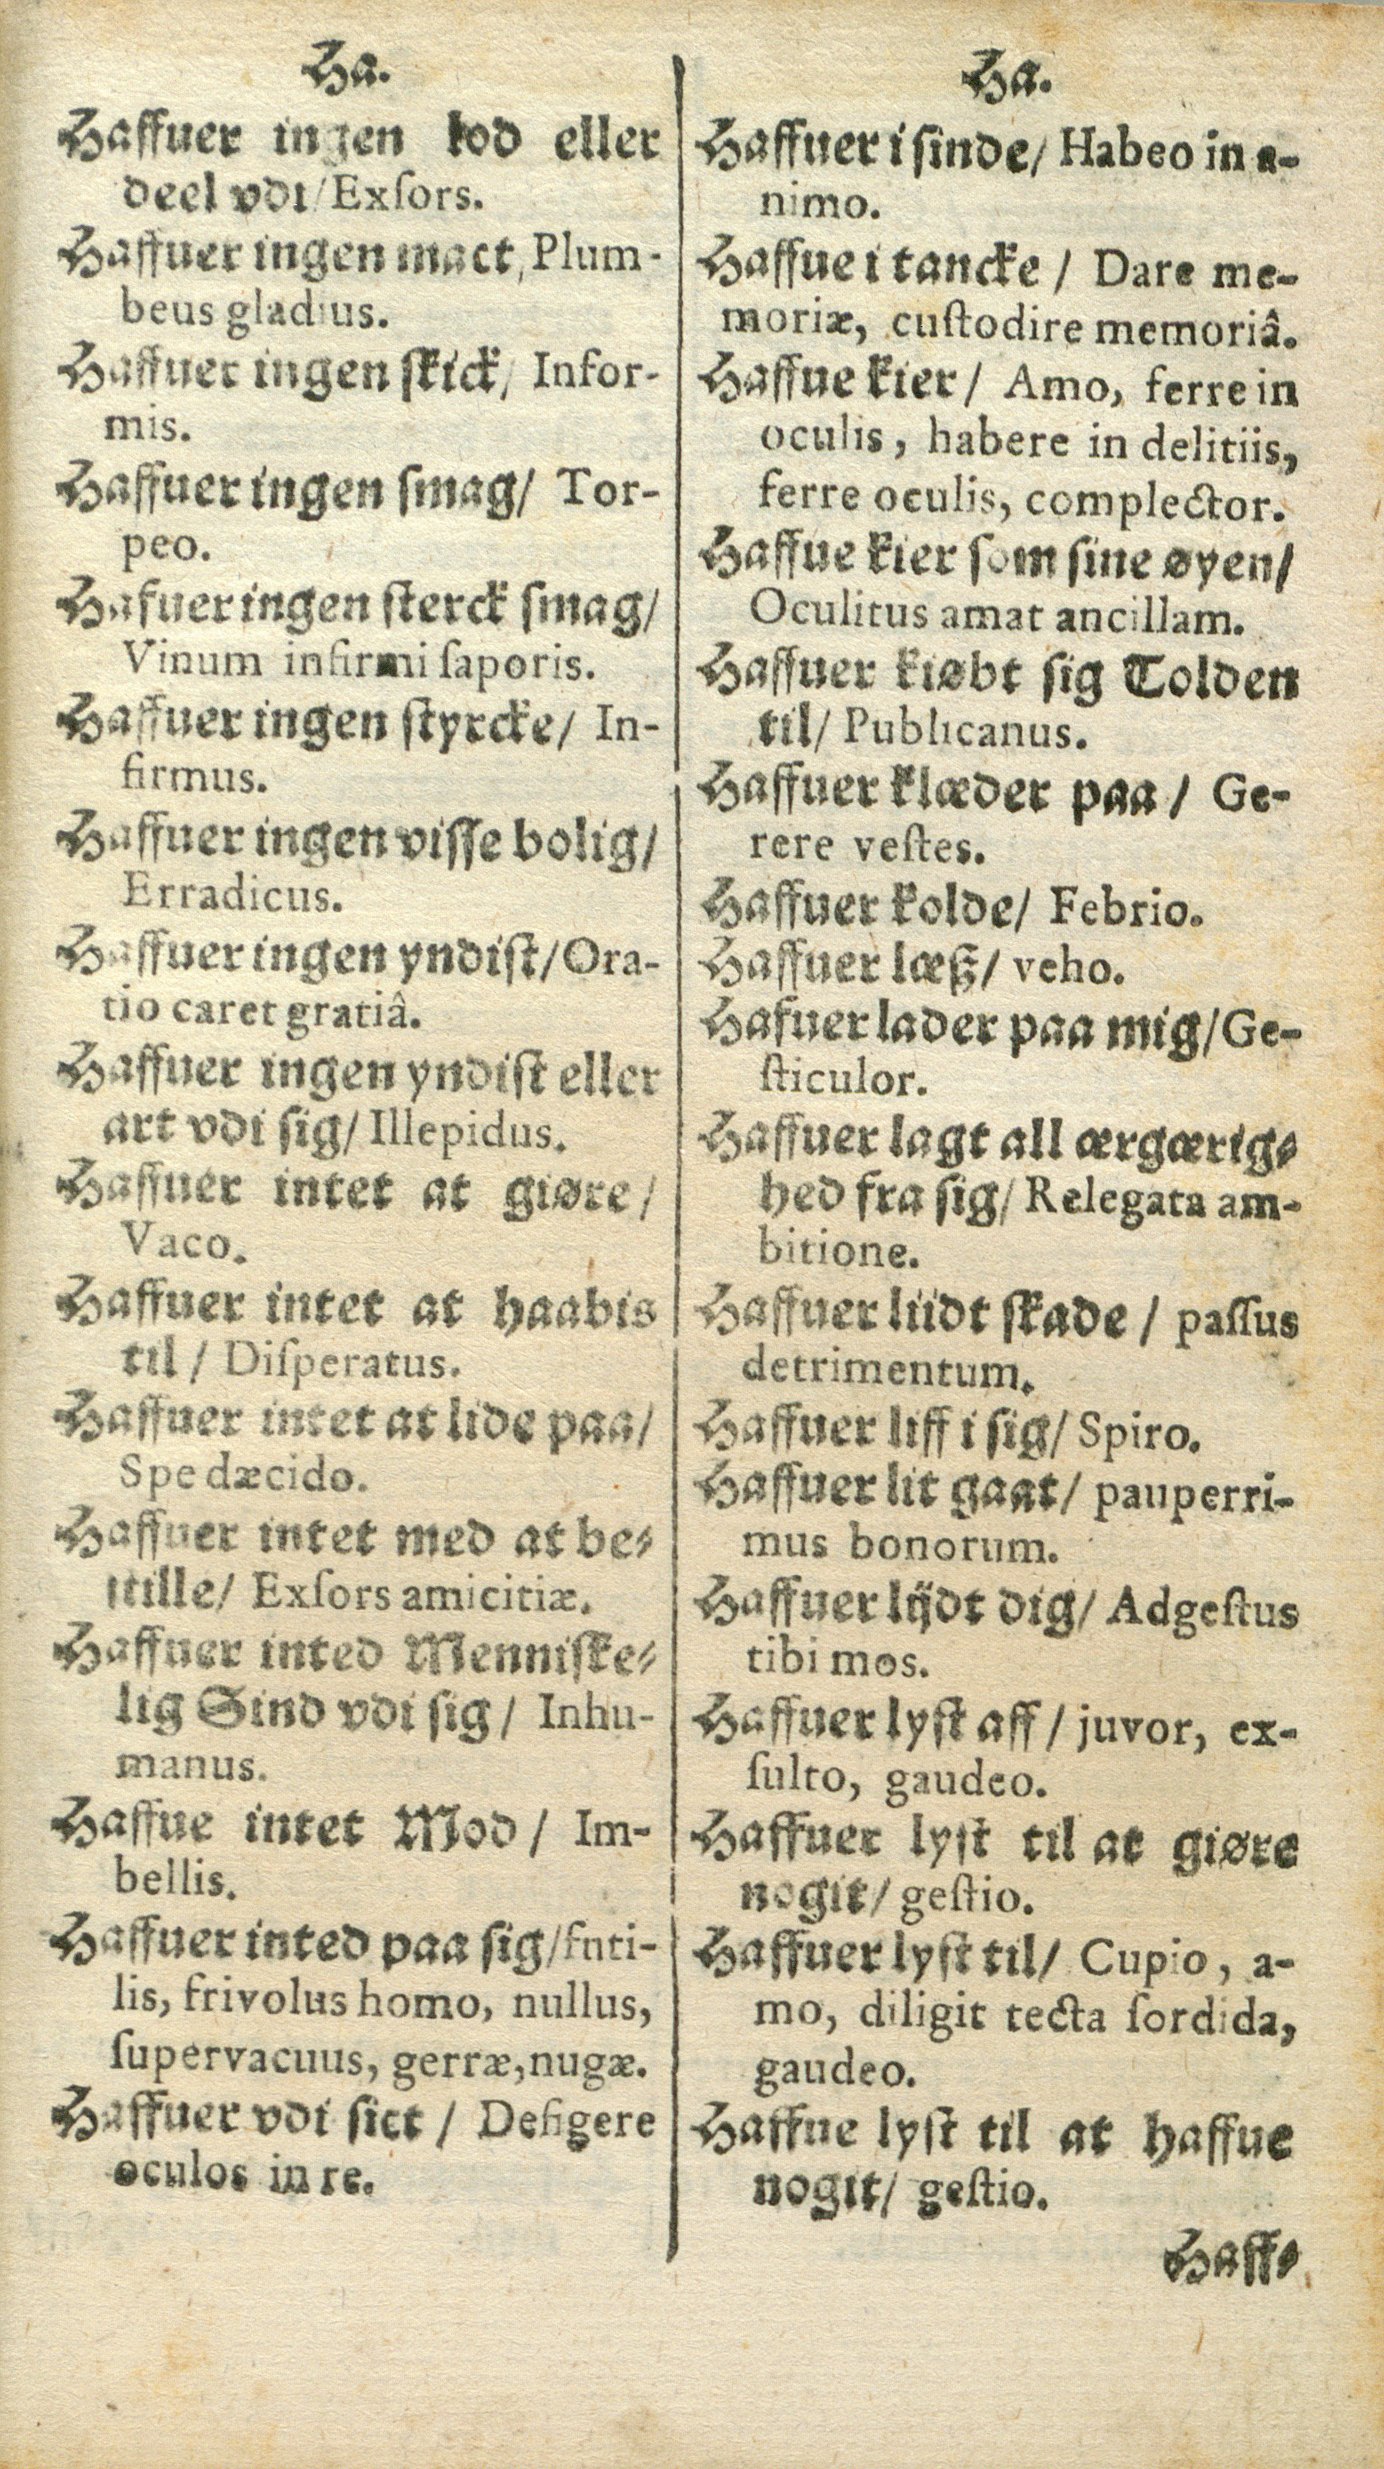 Ha.
Haffuer ingen lod eller
deel vdi/Exſors.
Haffuer ingen mact, Plum-
beus gladius.
Haffuer ingen ſkick/ Infor-
mis.
Haffuer ingen ſmag/ Tor-
peo.
Hafuer ingen ſterck ſmag/
Vinum infirmi ſaporis.
Haffuer ingen ſtyrcke/ In-
firmus.
Haffuer ingen viſſe bolig/
Erradicus.
Haffuer ingen yndiſt/Ora-
tio caret gratiâ.
Haffuer ingen yndiſt eller
art vdi ſig/ Illepidus.
Haffuer intet at giøre/
Vaco.
Haffuer intet at haabis
til / Diſperatus.
Haffuer intet at lide paa/
Spe dæcido.
Haffuer intet med at be-
ſtille/ Exſors amicitiæ.
Haffuer inted Menniſke-
lig Sind vdi ſig/ Inhu-
manus.
Haffue intet Mod / Im-
bellis.
Haffuer inted paa ſig/futi-
lis, frivolus homo, nullus,
ſupervacuus, gerræ,nugæ.
Haffuer vdi ſict / Defigere
oculos in re.
Ha.
Haffuer i ſinde/ Habeo in a-
nimo.
Haffue i tancke / Dare me-
moriæ, cuſtodire memoriâ.
Haffue kier/ Amo, ferre in
oculis, habere in delitiis,
ferre oculis, complector.
Haffue kier ſom ſine øyen/
Oculitus amat ancillam.
Haffuer kiøbt ſig Tolden
til/ Publicanus.
Haffuer klæder paa / Ge-
rere veſtes.
Haffuer kolde/ Febrio.
Haffuer læß/ veho.
Hafuer lader paa mig/Ge-
ſticulor.
Haffuer lagt all ærgærig-
hed fra ſig/ Relegata am-
bitione.
Haffuer liidt ſkade / paſſus
detrimentum.
Haffuer liff i ſig/ Spiro.
Haffuer lit gaat/ pauperri-
mus bonorum.
Haffuer lijdt dig/ Adgeſtus
tibi mos.
Haffuer lyſt aff / juvor, ex-
ſulto, gaudeo.
Haffuer lyſt til at giøre
nogit/ geſtio.
Haffuer lyſt til/ Cupio, a-
mo, diligit tecta ſordida,
gaudeo.
Haffue lyſt til at haffue
nogit/ geſtio.
Haff-